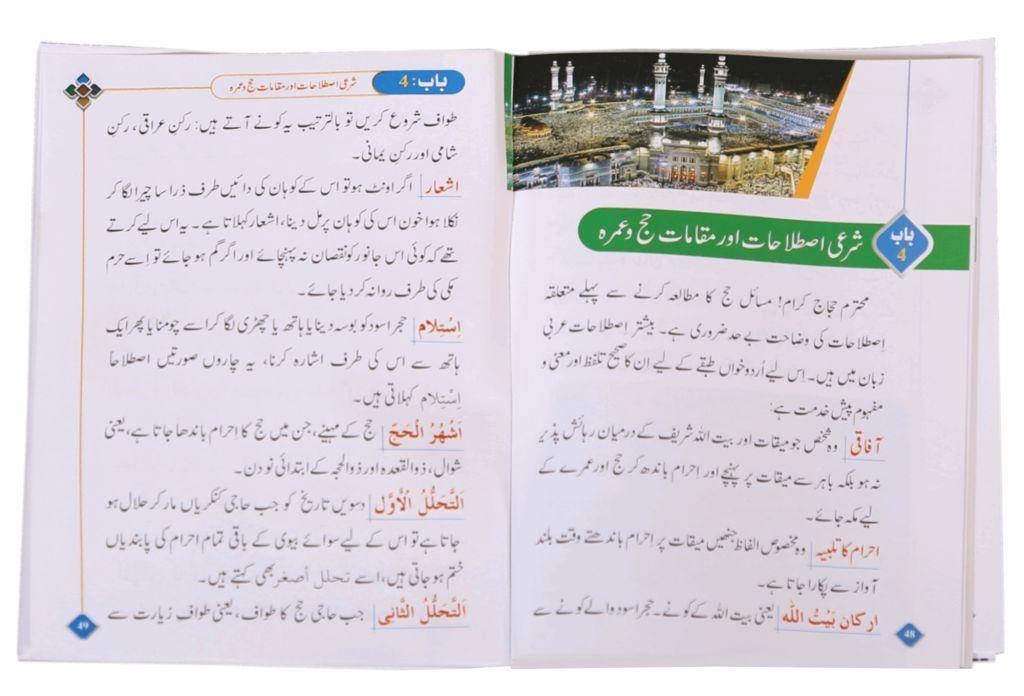 باب 4
شرعی اصطلاحات اور مقامات حج و عمرہ
محترم حجاج کرام! مسائل حج کا مطالعہ کرنے سے پہلے متعلقہ
اِصطلاحات کی وضاحت بے حد ضروری ہے۔ بیشتر اِصطلاحات عربی
زبان میں ہیں۔ اِس لیے اُردو خواں طبقے کے لیے اِن کا صحیح تلفظ اور معنی و
مفہوم پیش خدمت ہے:
آفاقی وہ شخص جو میقات اور بیت اللہ شریف کے درمیان رہائش پذیر
نہ ہو بلکہ باہر سے میقات پر پہنچے اور احرام باندھ کر حج اور عمرے کے
لیے مکہ جائے۔
احرام کا تلبیہ وہ مخصوص الفاظ جنھیں میقات پر اِحرام باندھتے وقت بلند
آواز سے پکارا جاتا ہے۔
ارکان بَیْتُ اللّٰہ یعنی بیت اللہ کے کونے۔ حجر اسود والے کونے سے
48
باب: 4 شرعی اصطلاحات اور مقامات حج و عمرہ
طواف شروع کریں تو بالترتیب یہ کونے آتے ہیں: رکنِ عراقی، رکن
شامی اور رکن یمانی۔
اشعار اگر اونٹ ہو تو اس کے کوہان کی دائیں طرف ذرا سا چیرا لگا کر
نکلا ہوا خون اس کی کوہان پر مل دینا، اشعار کہلاتا ہے۔ یہ اس لیے کرتے
تھے کہ کوئی اس جانور کو نقصان نہ پہنچائے اور اگر گم ہو جائے تو اِسے حرم
مکی کی طرف روانہ کر دیا جائے۔
اِسْتِلَام حجر اسود کو بوسہ دینا یا ہاتھ یا چھڑی لگا کر اسے چومنا یا پھر ایک
ہاتھ سے اس کی طرف اشارہ کرنا، یہ چاروں صورتیں اصطلاحاً
اِسْتِلَام کہلاتی ہیں۔
اَشْهُرُ الْحَجّ حج کے مہینے، جن میں حج کا اِحرام باندھا جاتا ہے، یعنی
شوال، ذوالقعدہ اور ذوالحجہ کے ابتدائی نو دن۔
اَلتَّحَلُّلُ الْاَوَّل دسویں تاریخ کو جب حاجی کنکریاں مار کر حلال ہو
جاتا ہے تو اس کے لیے سوائے بیوی کے باقی تمام احرام کی پابندیاں
ختم ہو جاتی ہیں، اسے تحلل أصغر بھی کہتے ہیں۔
اَلتَّحَلُّلُ الثَّانِی جب حاجی حج کا طواف، یعنی طواف زیارت سے
49